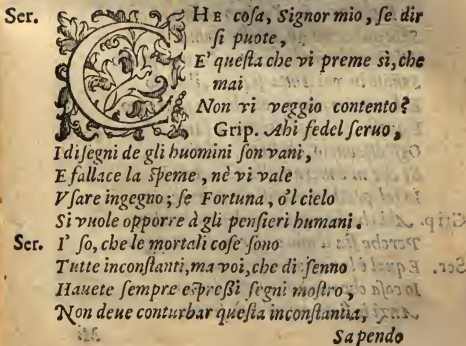 Ser. CHE cosa, Signor mio, se dir
si puote,
E' questa che vi preme sì, che
mai
Non vi veggio contento?
Grip. Ahi fedel seruo,
I disegni de gli huomini son vani,
E fallace la speme, nè vi vale
Vsare ingegno; se Fortuna, o'l cielo
Si vuole opporre à gli pensieri humani.
Ser. I' so, che le mortali cose sono
Tutte inconstanti, ma voi, che di senno
Hauete sempre espreßi segni mostro,
Non deue conturbar questa inconstantia,
Sapendo